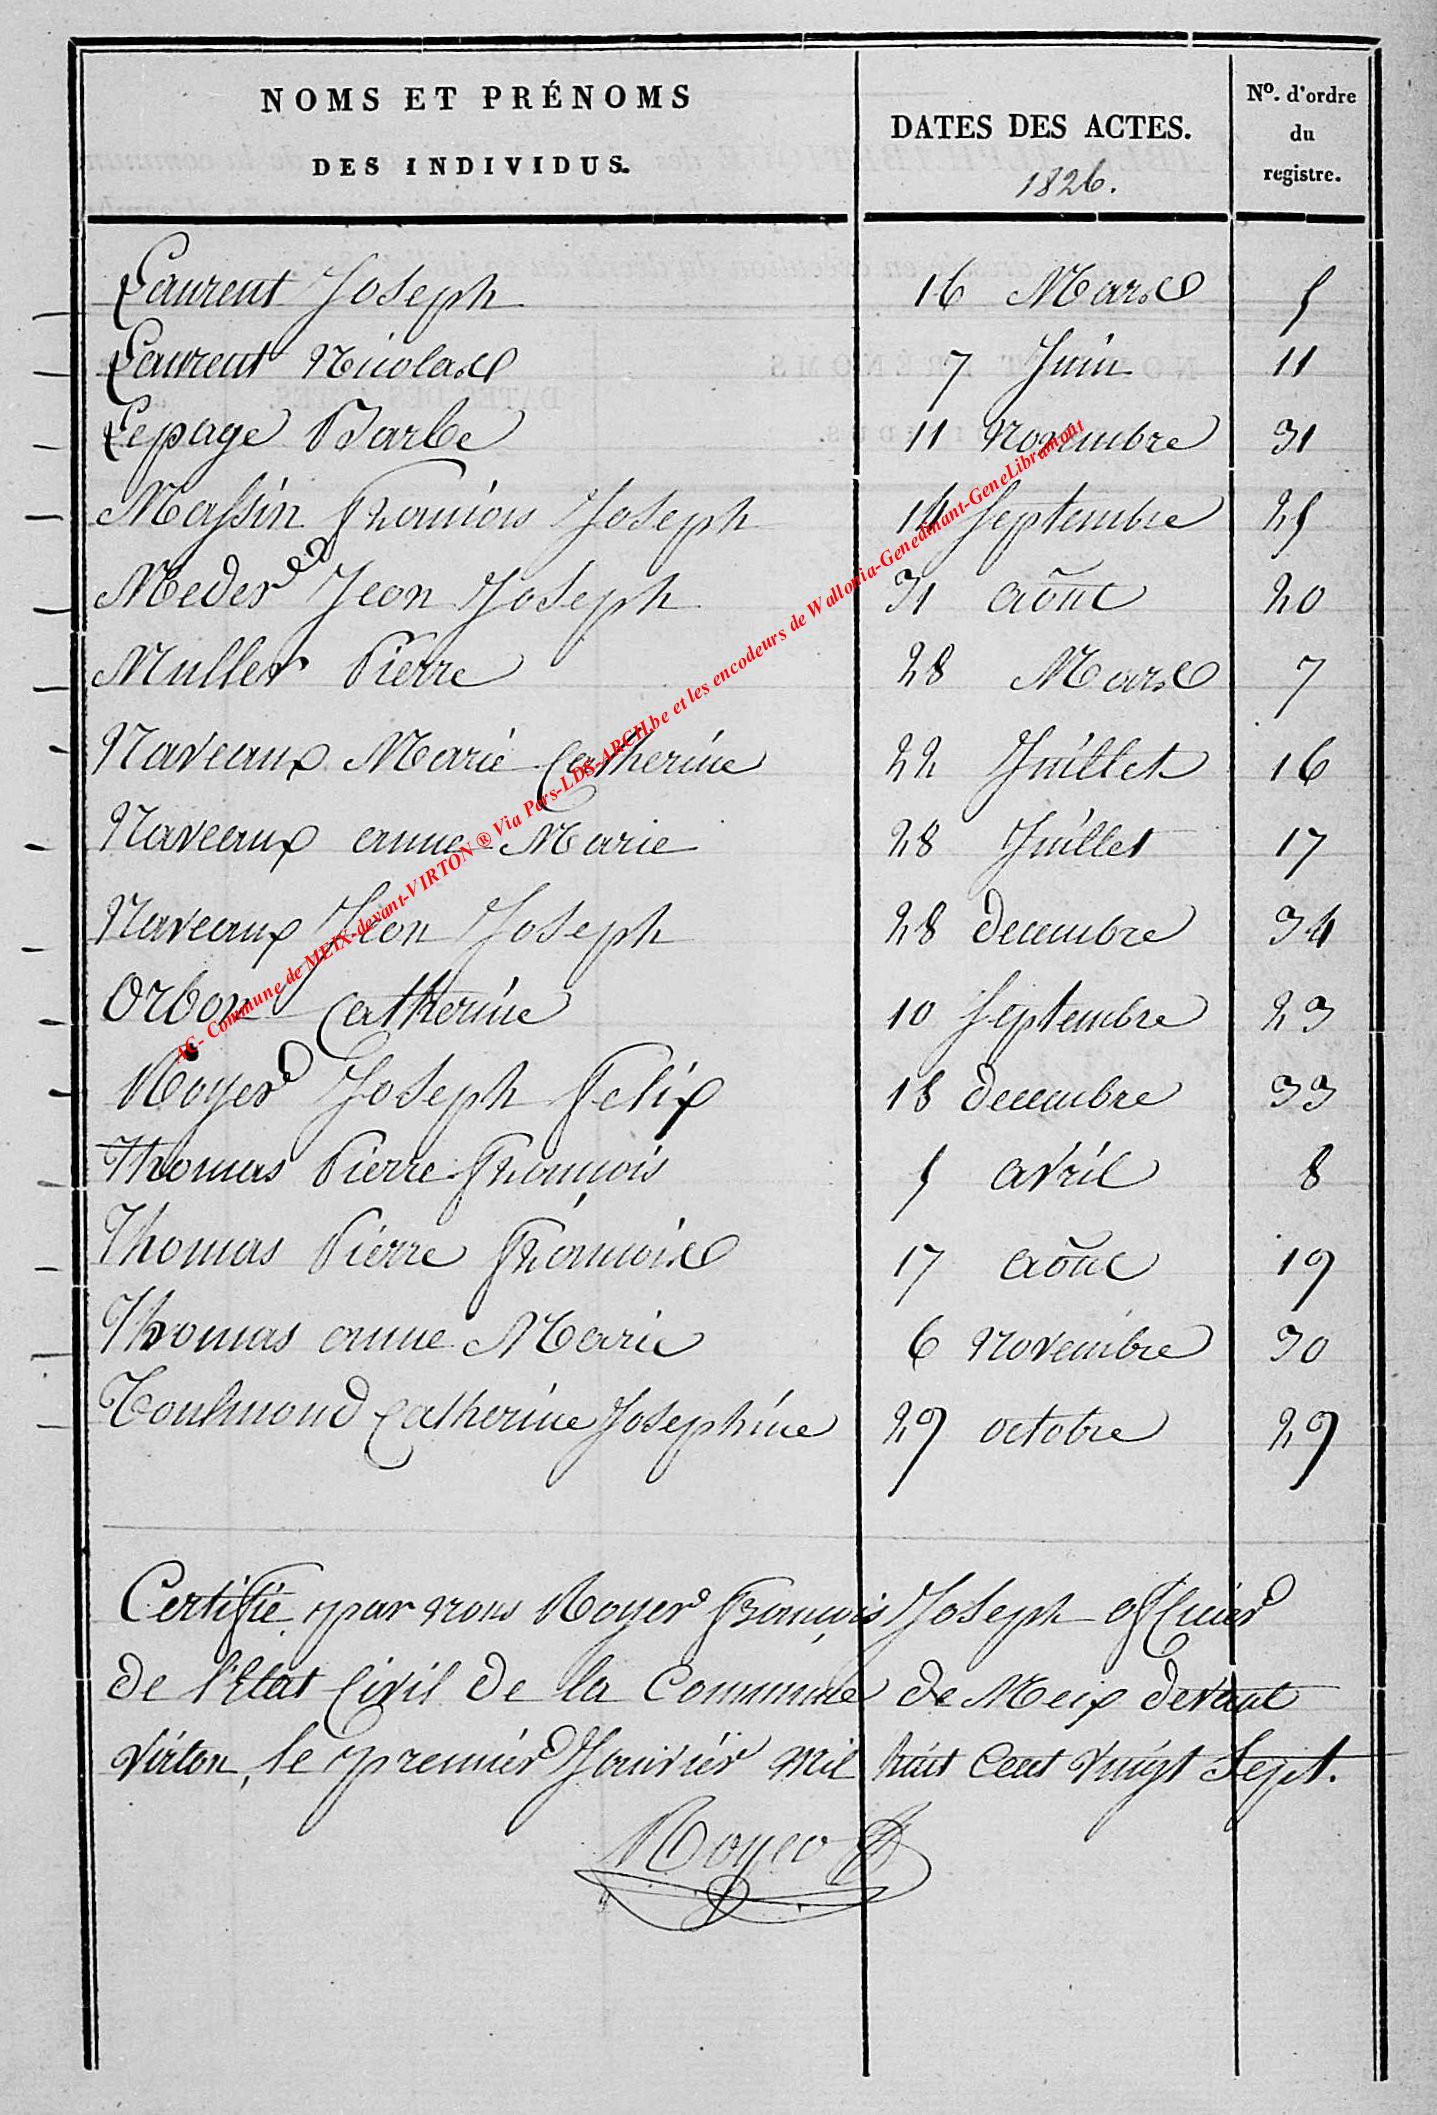 NOMS ET PRÉNOMS DES INDIVIDUS. DATES DES ACTES. 1826. Nº. d'ordre du registre.
Laurent Joseph 16 Mars 5
Laurent Nicolas 7 Juin 11
Lepage Barbe 11 Novembre 31
Massin François Joseph 14 Septembre 25
Meder Jean Joseph 31 août 20
Muller Pierre 28 Mars 7
Naveaux Marie Catherine 22 Juillet 16
Naveaux anne Marie 28 Juillet 17
Naveaux Jean Joseph 28 decembre 34
Orban Catherine 10 Septembre 23
Royer Joseph Felix 18 decembre 33
Thomas Pierre François 5 avril 8
Thomas Pierre François 17 août 19
Thomas anne Marie 6 novembre 30
Toulmond Catherine Josephine 29 octobre 29
Certifié par nous Royer François Joseph officier
de l'Etat Civil de la Commune de Meix devant
Virton, le premier Janvier mil huit Cent vingt Sept.
Royer
AC- Commune de MEIX-devant-VIRTON ® Via Pars-LDS-ARCH.be et les encodeurs de Wallonia-Genedinant-GeneLibramont